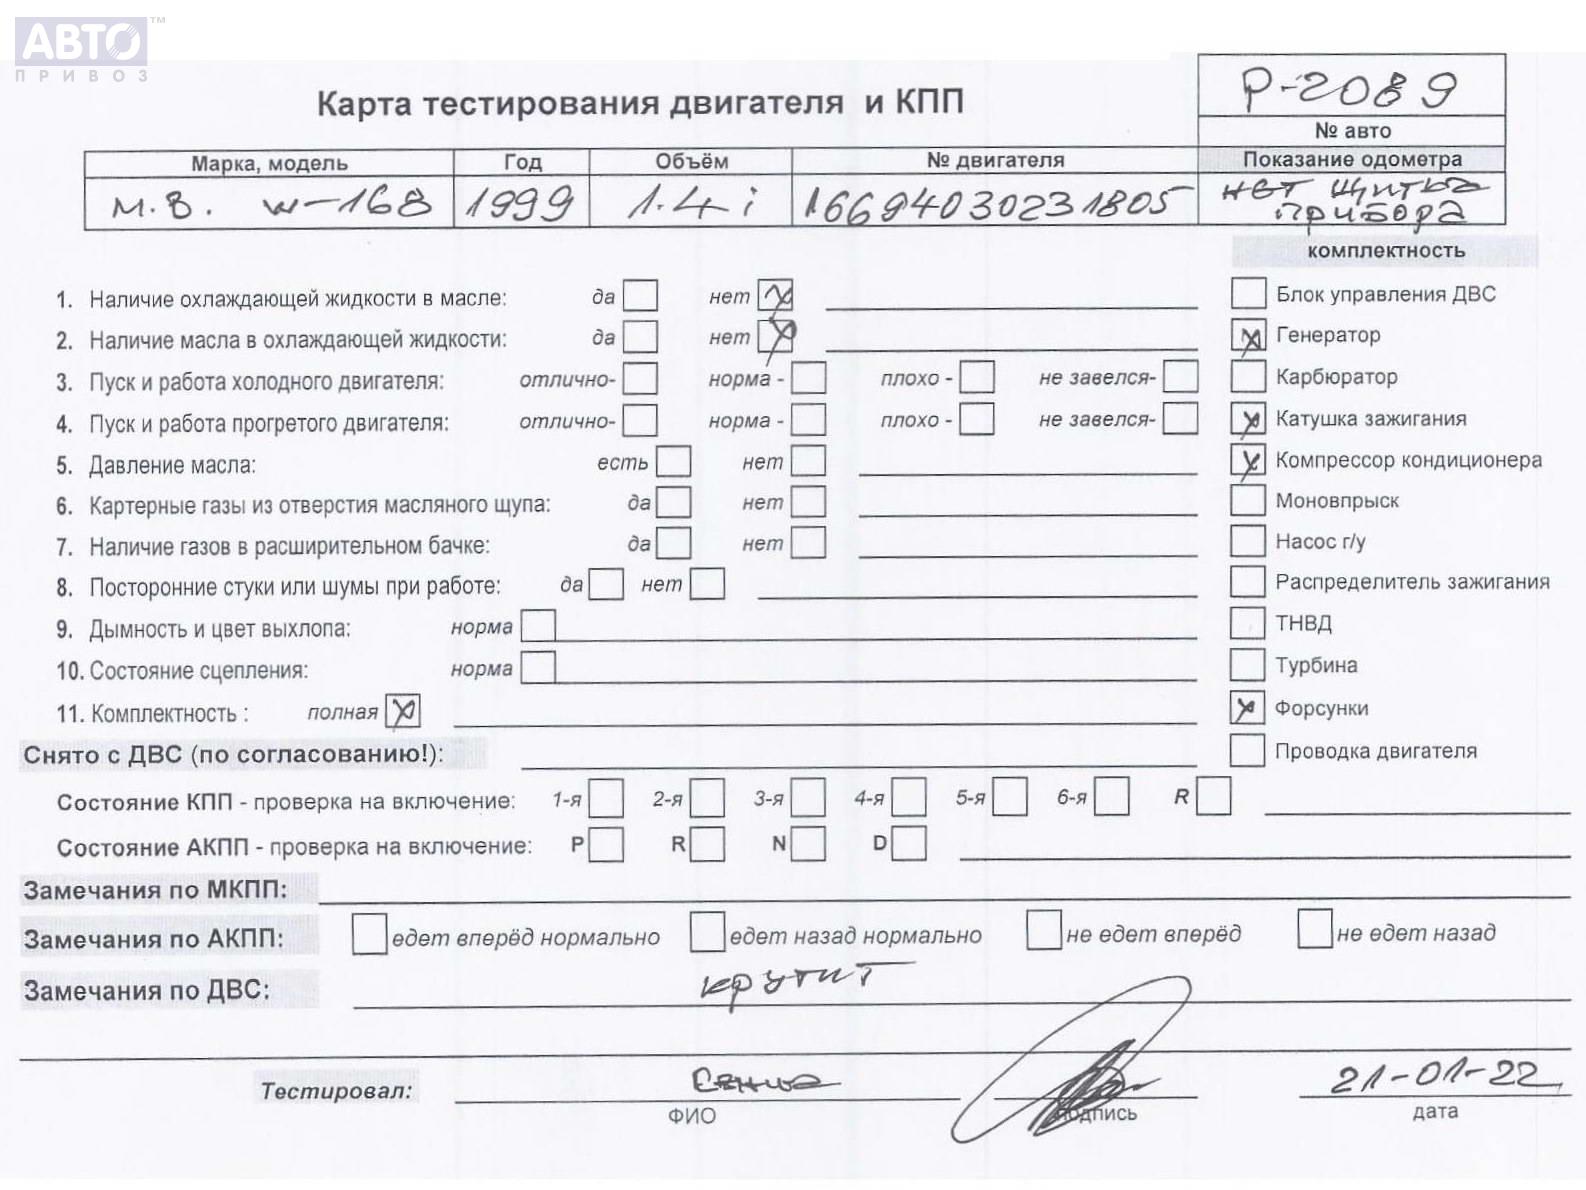 АВТО™
ПРИВОЗ
Карта тестирования двигателя и КПП
Р-2089
№ авто
Марка, модель Год Объём № двигателя Показание одометра
М.В. W-168 1999 1.4 i 16694030231805 нет щитка
прибора
комплектность
1. Наличие охлаждающей жидкости в масле: да нет Блок управления ДВС
2. Наличие масла в охлаждающей жидкости: да нет Генератор
3. Пуск и работа холодного двигателя: отлично- норма - плохо - не завелся- Карбюратор
4. Пуск и работа прогретого двигателя: отлично- норма - плохо - не завелся- Катушка зажигания
5. Давление масла: есть нет Компрессор кондиционера
6. Картерные газы из отверстия масляного щупа: да нет Моновпрыск
7. Наличие газов в расширительном бачке: да нет Насос г/у
8. Посторонние стуки или шумы при работе: да нет Распределитель зажигания
9. Дымность и цвет выхлопа: норма ТНВД
10. Состояние сцепления: норма Турбина
11. Комплектность : полная Форсунки
Снято с ДВС (по согласованию!): Проводка двигателя
Состояние КПП - проверка на включение: 1-я 2-я 3-я 4-я 5-я 6-я R
Состояние АКПП - проверка на включение: P R N D
Замечания по МКПП:
Замечания по АКПП: едет вперёд нормально едет назад нормально не едет вперёд не едет назад
Замечания по ДВС: крутит
Тестировал: 21-01-22
ФИО подпись дата